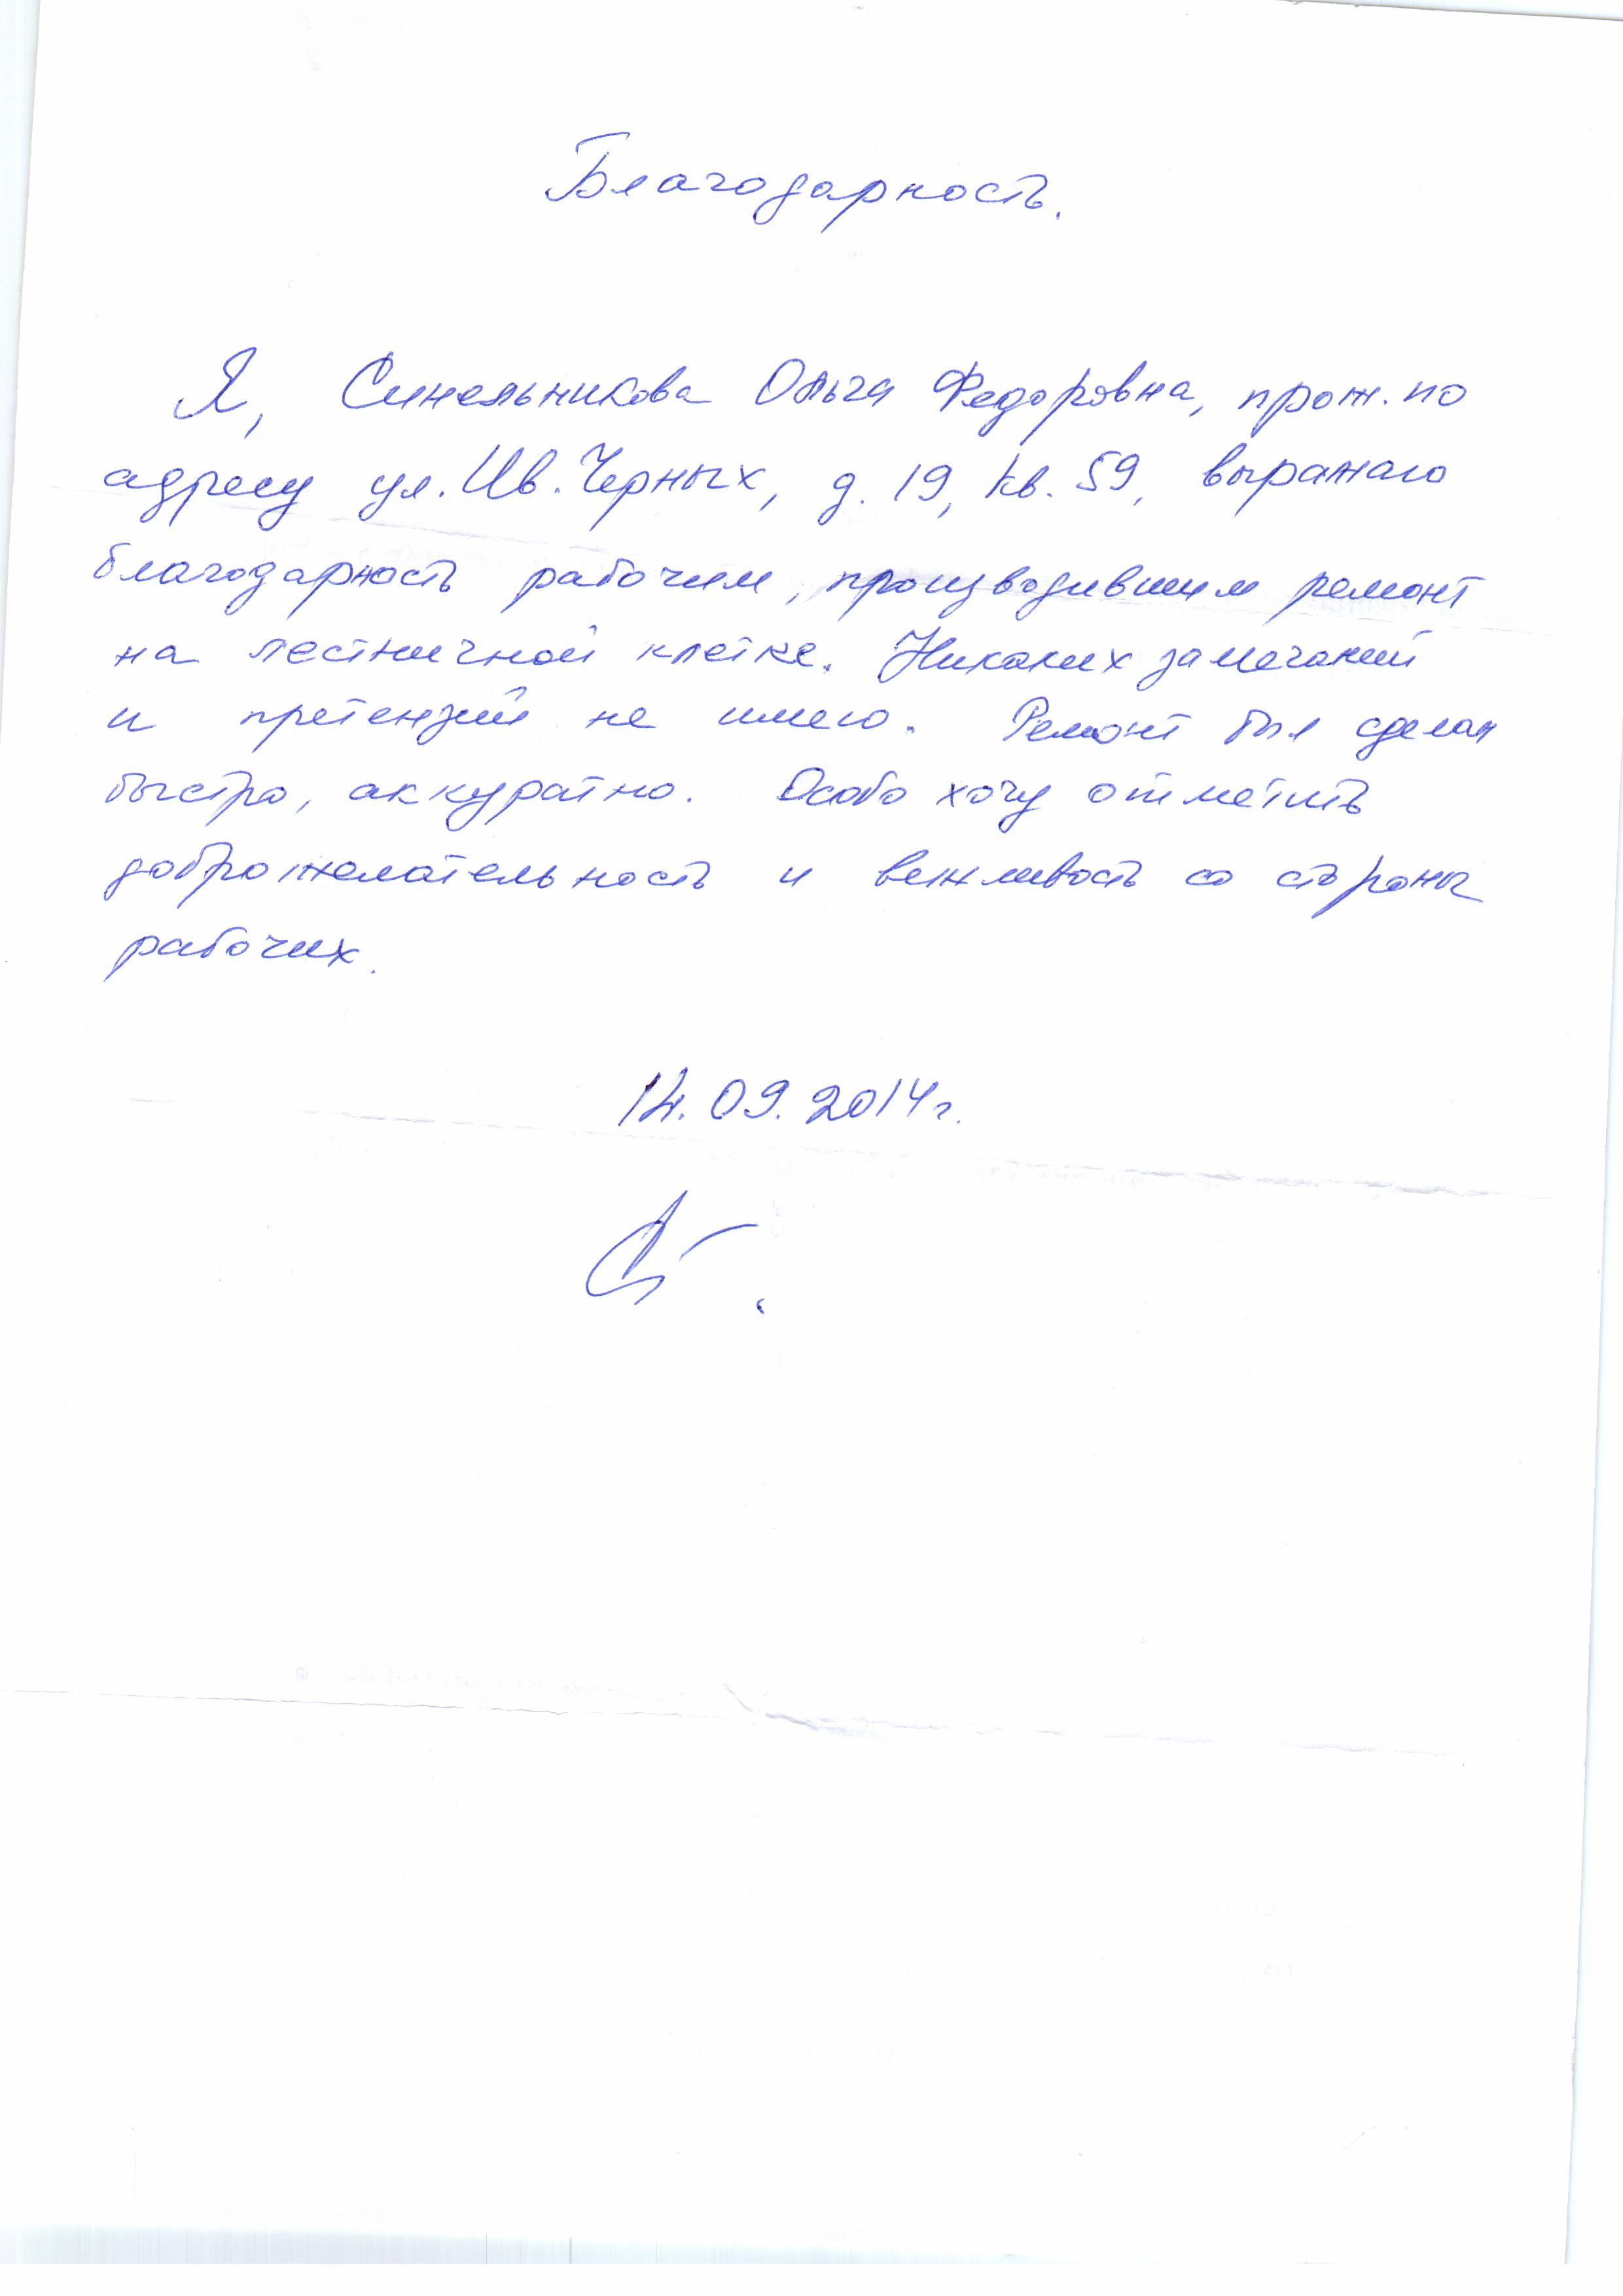 Благодарность.
Я, Синельникова Ольга Федоровна, прож. по
адресу ул. Ив. Черных, д. 19, кв. 59, выражаю
благодарность рабочим, производившим ремонт
на лестничной клетке. Никаких замечаний
и претензий не имею. Ремонт был сделан
быстро, аккуратно. Особо хочу отметить
доброжелательность и вежливость со стороны
рабочих.
14.09.2014г.